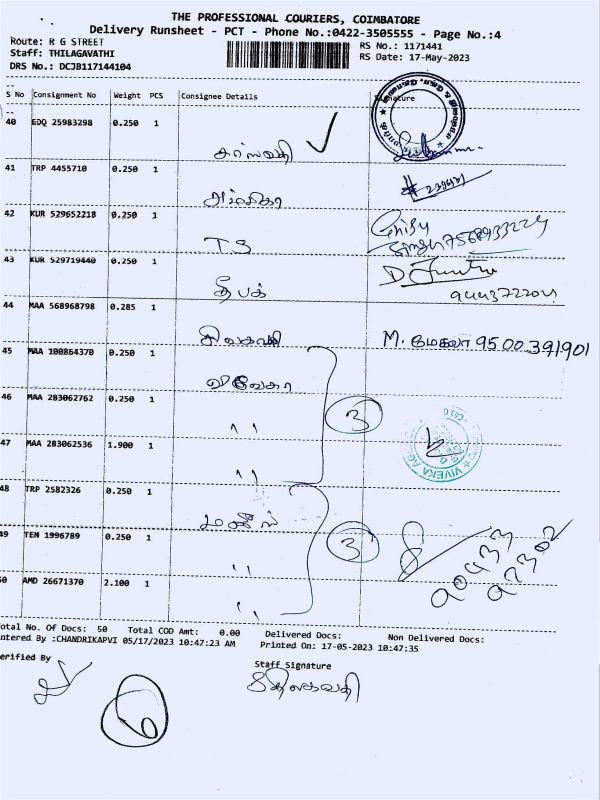 THE PROFESSIONAL COURIERS, COIMBATORE
Delivery Runsheet - PCT - Phone No.:0422-3505555 - Page No.:4
Route: R G STREET
RS No.: 1171441
Staff: THILAGAVATHI
RS Date: 17-May-2023
DRS No.: DCJB117144104
S No Consignment No Weight PCS Consignee Details Signature
40 EDQ 25983298 0.250 1
சரஸ்வதி
41 TRP 4455710 0.250 1
அம்பிகா
42 KUR 529652218 0.250 1
TS
43 KUR 529719440 0.250 1
தீபக்
44 MAA 568968798 0.285 1
சிவசக்தி M. மேகலா 9500391901
45 MAA 100864370 0.250 1
விவேகா
46 MAA 283062762 0.250 1
,, 3
47 MAA 283062536 1.900 1
,, VIVEKA
48 TRP 2582326 0.250 1
49 TEN 1996789 0.250 1
,, 3
50 AMD 26671370 2.100 1
,,
Total No. Of Docs: 50 Total COD Amt: 0.00 Delivered Docs: Non Delivered Docs:
Entered By :CHANDRIKAPVI 05/17/2023 10:47:23 AM Printed On: 17-05-2023 10:47:35
Verified By Staff Signature
திலகவதி
6